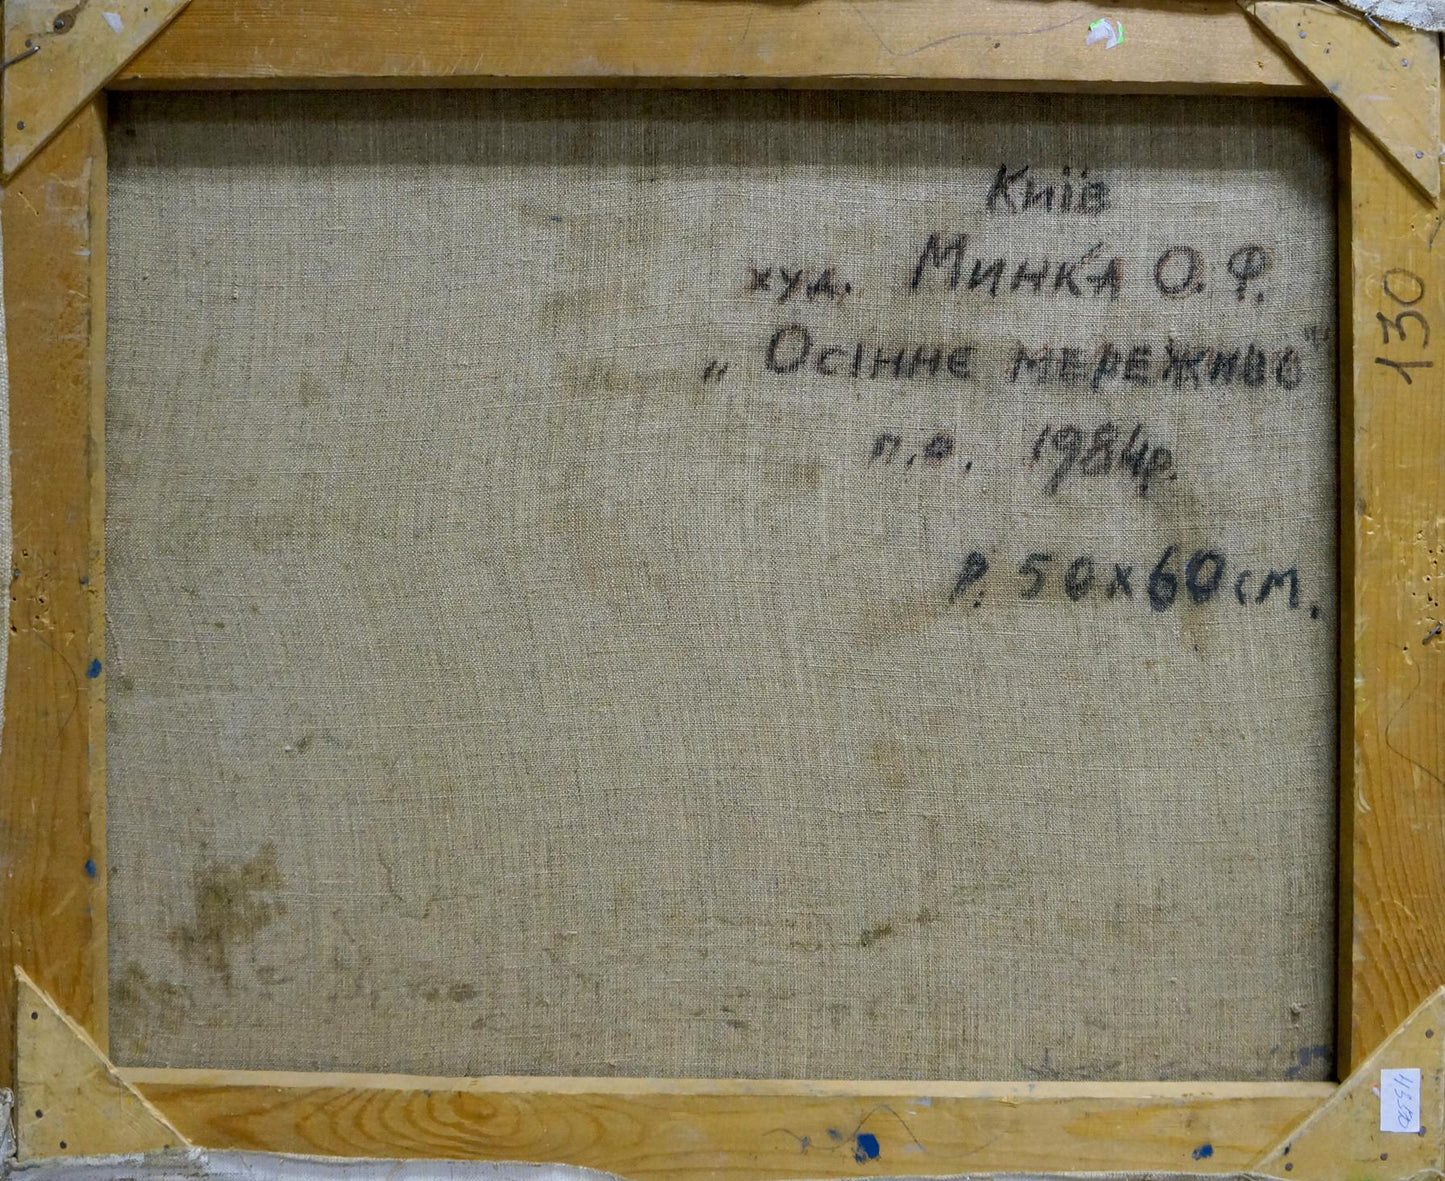 Київ
худ. Минка О.Ф.
„Осіннє мереживо"
п.о. 1984р.
р. 50х60см.
130